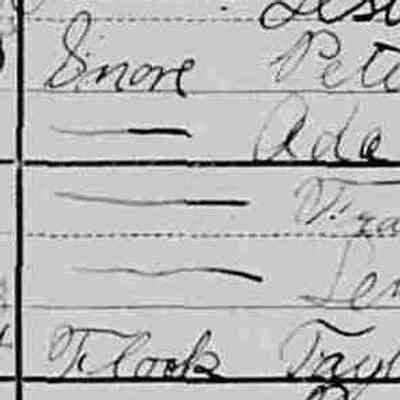 Sinore Pete
— Ada
— Fra
— Len
Flook Tayl